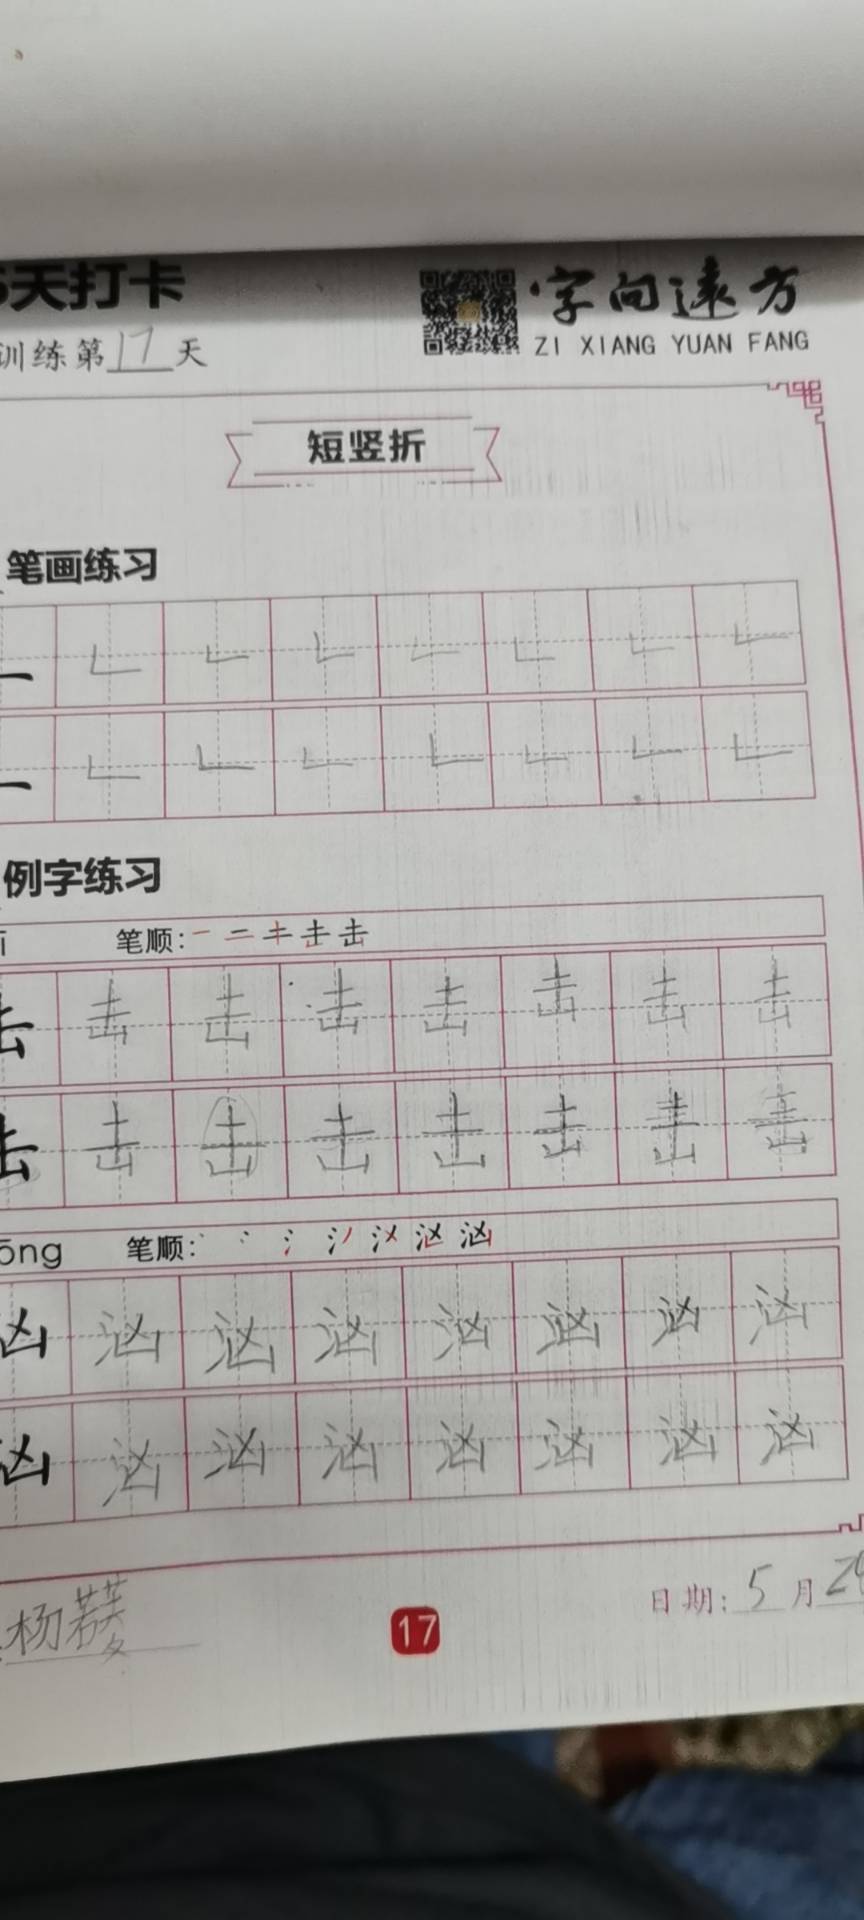 天打卡
字向远方
训练第17天
ZI XIANG YUAN FANG
短竖折
笔画练习
例字练习
笔顺：一 二 キ 击 击
击 击 击 击 击 击 击 击
击 击 击 击 击 击 击
ōng 笔顺：
汹 汹 汹 汹 汹 汹 汹
汹 汹 汹 汹 汹 汹 汹
杨若
17
日期：5月